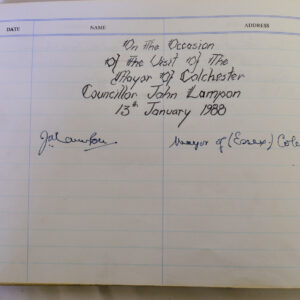 DATE NAME ADDRESS
On The Occasion
Of The Visit Of The
Mayor Of Colchester
Councillor John Lampon
13th January 1988
Mayor of (Essex)